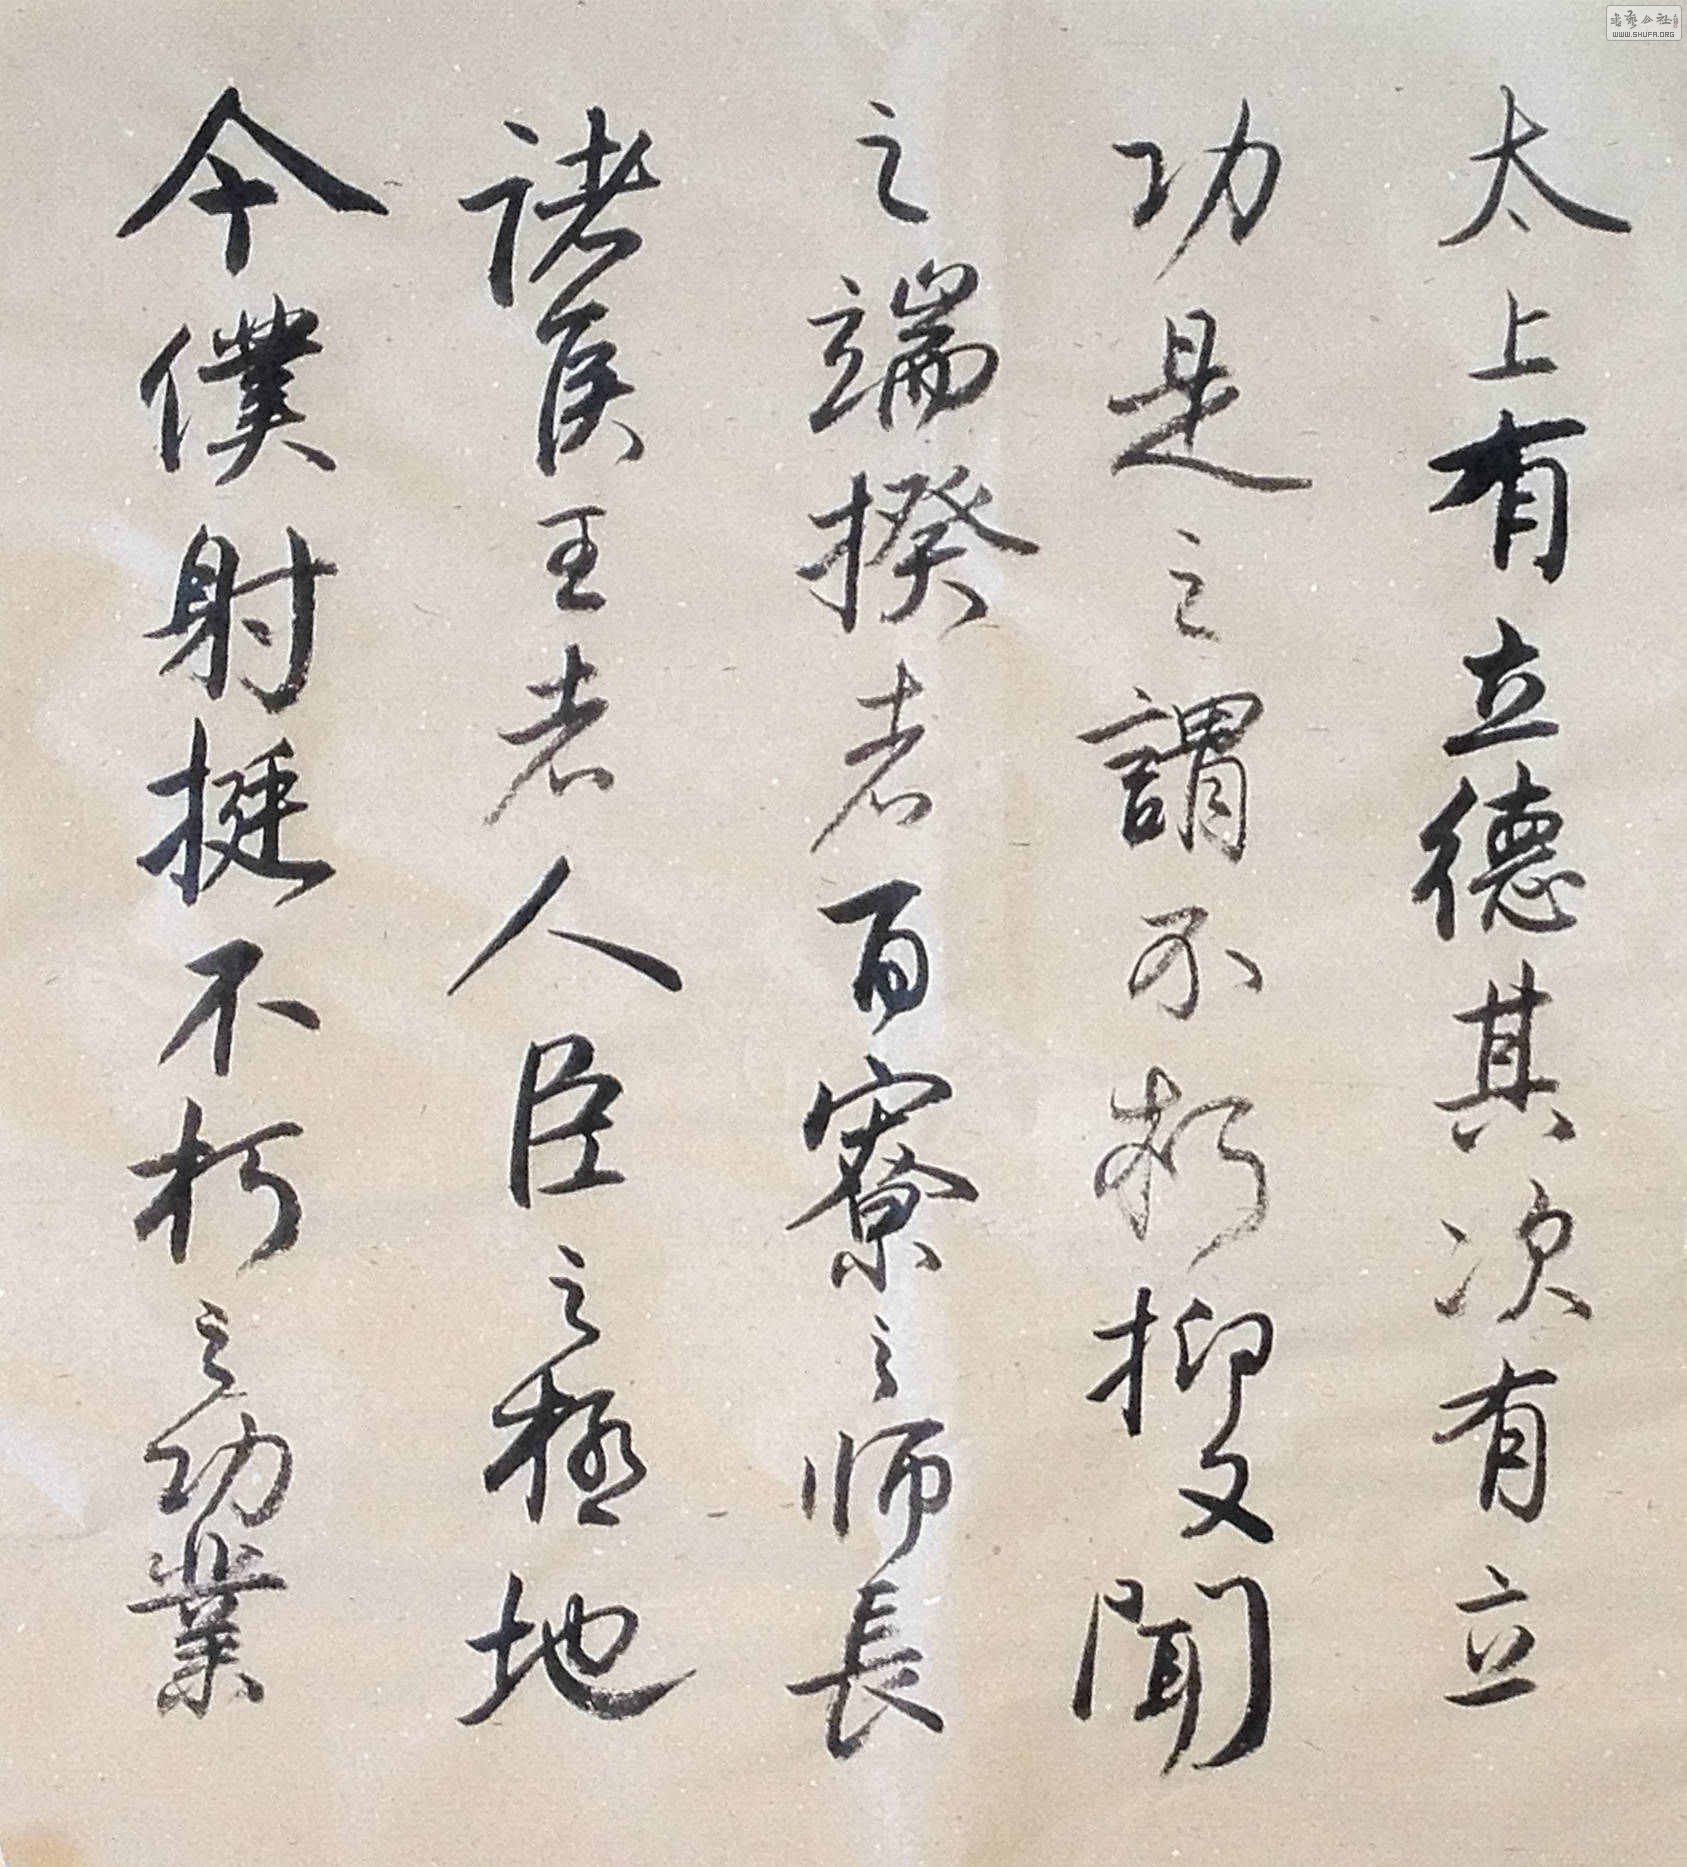 太上有立德其次有立
功是之謂不朽抑又聞
之端揆者百寮之师長
諸侯王者人臣之極地
今僕射挺不朽之功業
书艺公社
WWW.SHUFA.ORG